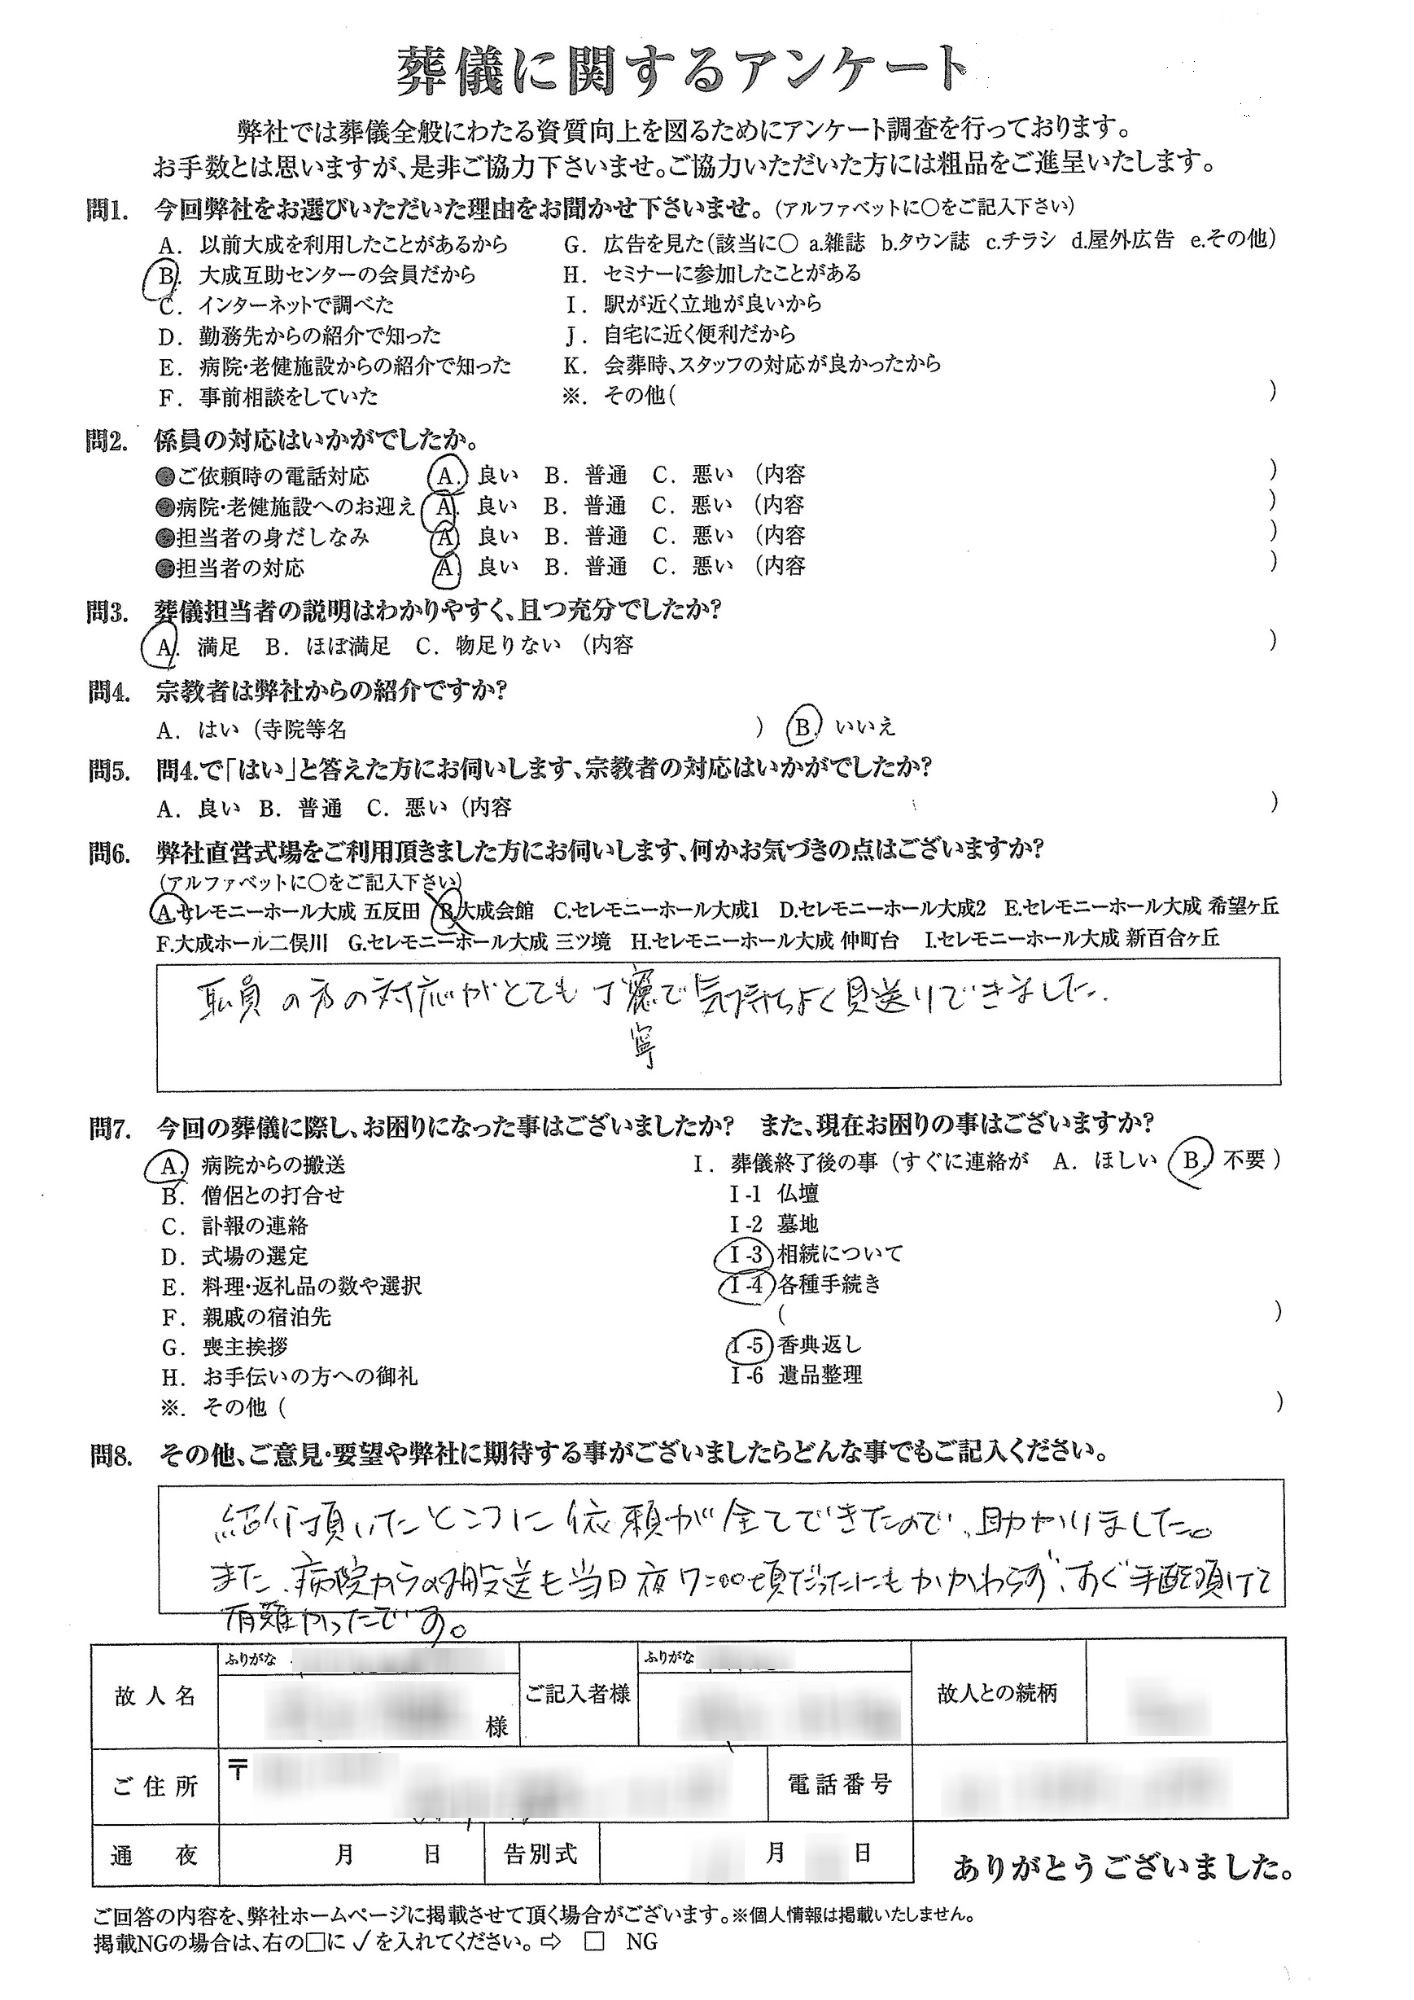 葬儀に関するアンケート
弊社では葬儀全般にわたる資質向上を図るためにアンケート調査を行っております。
お手数とは思いますが、是非ご協力下さいませ。ご協力いただいた方には粗品をご進呈いたします。
問1. 今回弊社をお選びいただいた理由をお聞かせ下さいませ。(アルファベットに○をご記入下さい)
A. 以前大成を利用したことがあるから G. 広告を見た(該当に○ a.雑誌 b.タウン誌 c.チラシ d.屋外広告 e.その他)
B. 大成互助センターの会員だから H. セミナーに参加したことがある
C. インターネットで調べた I. 駅が近く立地が良いから
D. 勤務先からの紹介で知った J. 自宅に近く便利だから
E. 病院・老健施設からの紹介で知った K. 会葬時、スタッフの対応が良かったから
F. 事前相談をしていた ※. その他( )
問2. 係員の対応はいかがでしたか。
●ご依頼時の電話対応 A. 良い B. 普通 C. 悪い (内容 )
●病院・老健施設へのお迎え A. 良い B. 普通 C. 悪い (内容 )
●担当者の身だしなみ A. 良い B. 普通 C. 悪い (内容 )
●担当者の対応 A. 良い B. 普通 C. 悪い (内容 )
問3. 葬儀担当者の説明はわかりやすく、且つ充分でしたか?
A. 満足 B. ほぼ満足 C. 物足りない (内容 )
問4. 宗教者は弊社からの紹介ですか?
A. はい (寺院等名 ) B. いいえ
問5. 問4.で「はい」と答えた方にお伺いします、宗教者の対応はいかがでしたか?
A. 良い B. 普通 C. 悪い (内容 )
問6. 弊社直営式場をご利用頂きました方にお伺いします、何かお気づきの点はございますか?
(アルファベットに○をご記入下さい)
A.セレモニーホール大成 五反田 B.大成会館 C.セレモニーホール大成1 D.セレモニーホール大成2 E.セレモニーホール大成 希望ヶ丘
F.大成ホール二俣川 G.セレモニーホール大成 三ツ境 H.セレモニーホール大成 仲町台 I.セレモニーホール大成 新百合ヶ丘
職員の方の対応がとても丁寧で気持ちよく見送りできました.
寧
問7. 今回の葬儀に際し、お困りになった事はございましたか? また、現在お困りの事はございますか?
A. 病院からの搬送 I. 葬儀終了後の事 (すぐに連絡が A. ほしい B. 不要 )
B. 僧侶との打合せ I-1 仏壇
C. 訃報の連絡 I-2 墓地
D. 式場の選定 I-3 相続について
E. 料理・返礼品の数や選択 I-4 各種手続き
F. 親戚の宿泊先 ( )
G. 喪主挨拶 I-5 香典返し
H. お手伝いの方への御礼 I-6 遺品整理
※. その他 ( )
問8. その他、ご意見・要望や弊社に期待する事がございましたらどんな事でもご記入ください。
紹介頂いたところに依頼が全てできたので、助かりました。
また、病院からの搬送も当日夜7:00頃だったにもかかわらず、すぐ手配頂けて
有難かったです。
故人名 ふりがな 様 ご記入者様 ふりがな 故人との続柄
ご住所 〒 電話番号
通夜 月 日 告別式 月 日 ありがとうございました。
ご回答の内容を、弊社ホームページに掲載させて頂く場合がございます。※個人情報は掲載いたしません。
掲載NGの場合は、右の□に✓を入れてください。⇨ □ NG